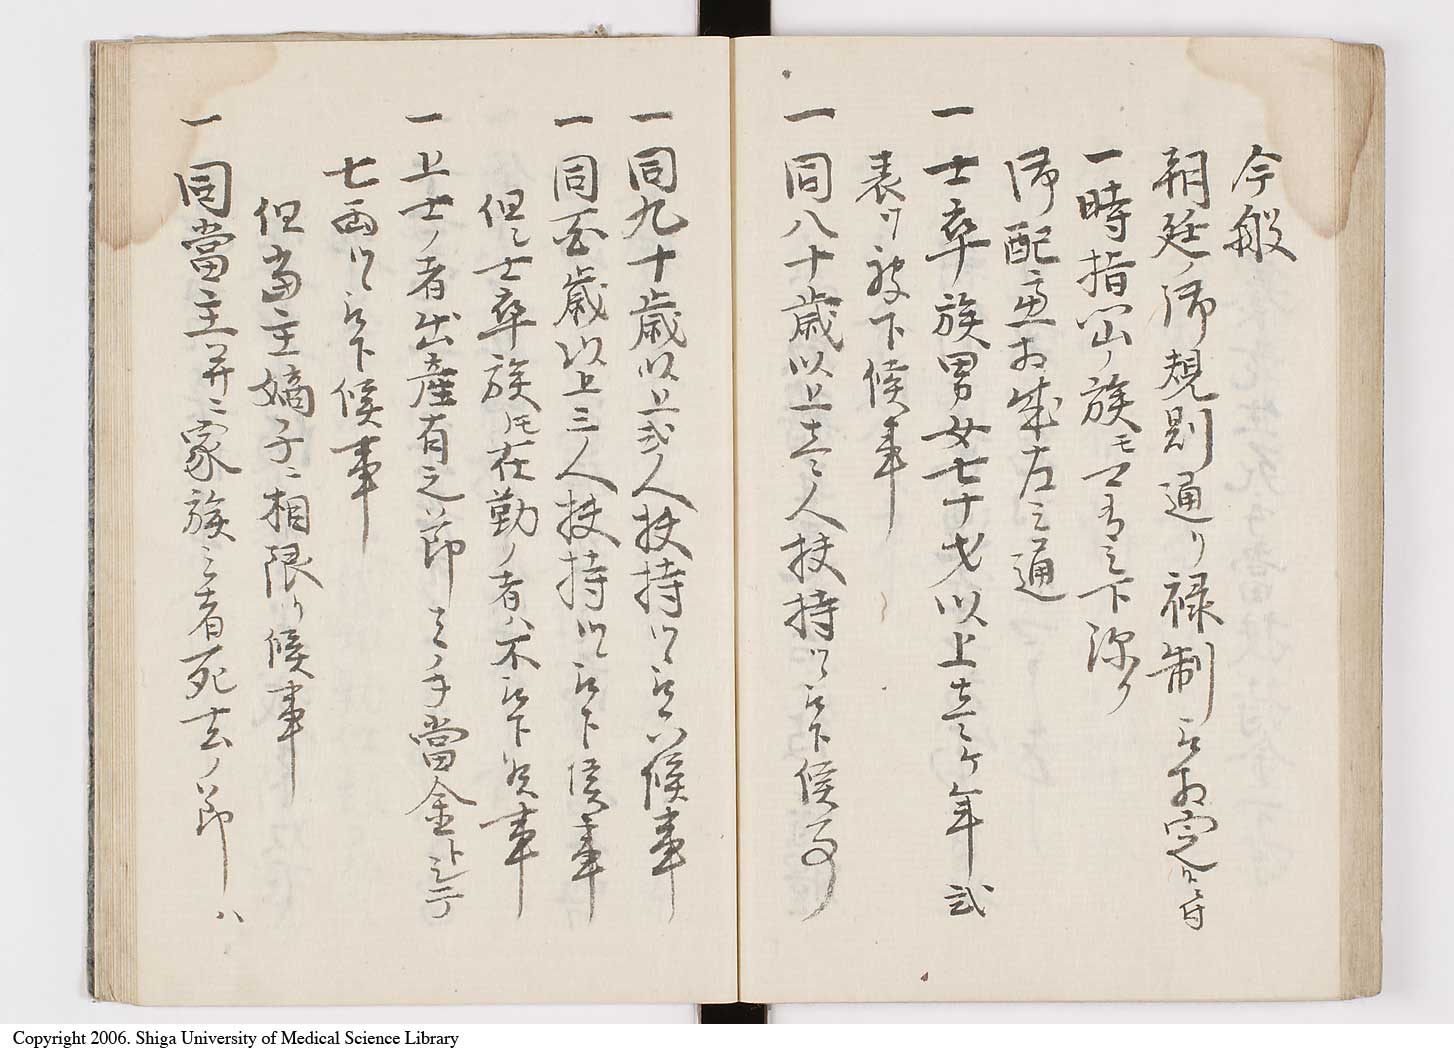 今般
朝廷ノ御規則通リ禄制被相定候ニ付
一時指閊ノ族モ可有之下深ク
御配慮相成左之通
一士卒族男女七十才以上壱ヶ年弐
表ツヽ被下候事
一同八十歳以上壱人扶持ツヽ被下候事
一同九十歳以上弐人扶持ツヽ被下候事
一同百歳以上三人扶持ツヽ被下候事
但シ士卒族ニモ在勤ノ者ハ不被下候事
一上士ノ者出産有之節ミノ手當金
七両ツヽ被下候事
但当主嫡子ニ相限リ候事
一同當主并ニ家族之者死去ノ節ハ
Copyright 2006. Shiga University of Medical Science Library